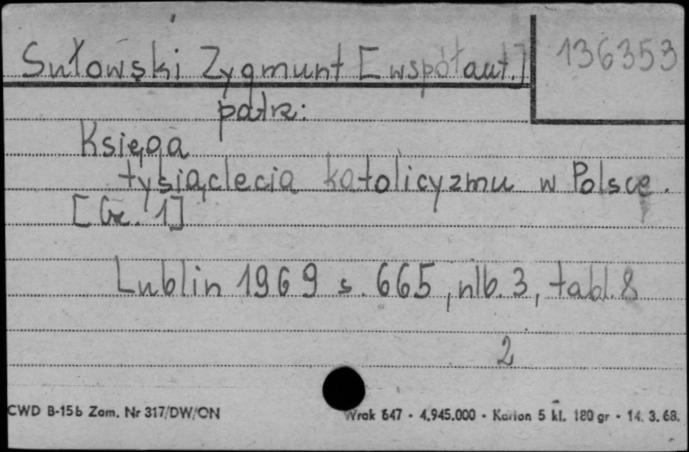 Sułowski Zygmunt [współaut.] 136353
patrz:
Księga
tysiąclecia katolicyzmu w Polsce.
[Cz. 1]
Lublin 1969 s. 665, nlb. 3, tabl. 8
2
CWD B-15b Zam. Nr 317/DW/ON Wrak 647 - 4.945.000 - Karton 5 kl. 180 gr - 14. 3. 68.